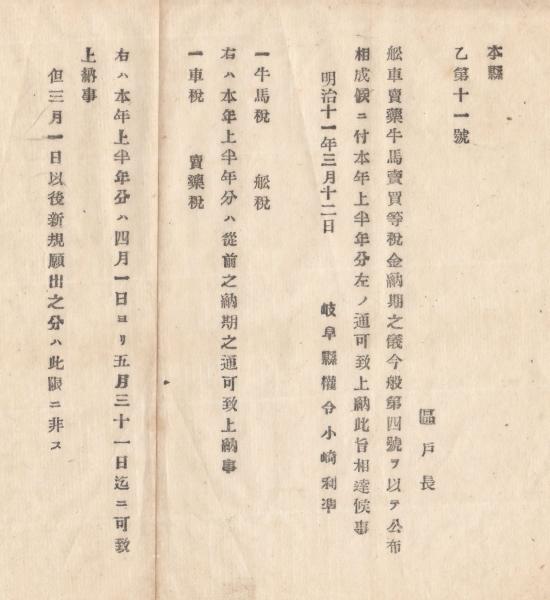 本縣
乙第十一號
區戸長
舩車賣藥牛馬賣買等税金納期之儀今般第四號ヲ以テ公布
相成候ニ付本年上半年分左ノ通可致上納此旨相達候事
明治十一年三月十二日　岐阜縣權令小崎利準
一牛馬税　舩税
右ハ本年上半年分ハ從前之納期之通可致上納事
一車税　賣藥税
右ハ本年上半年分ハ四月一日ヨリ五月三十一日迄ニ可致
上納事
但三月一日以後新規願出之分ハ此限ニ非ス